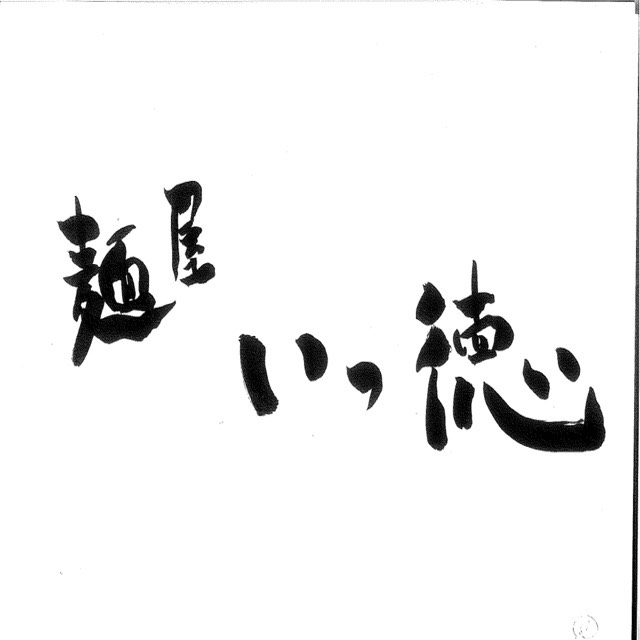 麺屋 いっ徳